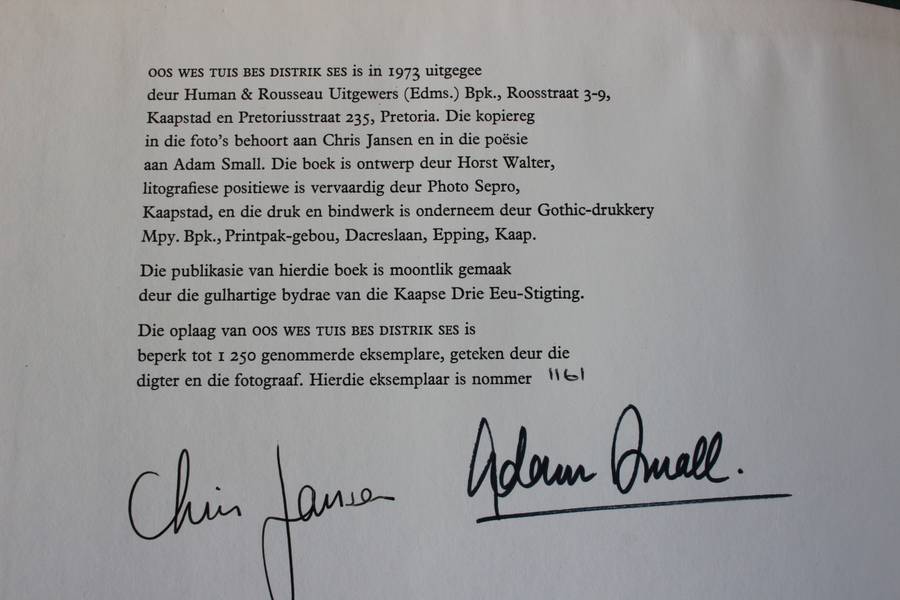 OOS WES TUIS BES DISTRIK SES is in 1973 uitgegee
deur Human & Rousseau Uitgewers (Edms.) Bpk., Roosstraat 3-9,
Kaapstad en Pretoriusstraat 235, Pretoria. Die kopiereg
in die foto's behoort aan Chris Jansen en in die poësie
aan Adam Small. Die boek is ontwerp deur Horst Walter,
litografiese positiewe is vervaardig deur Photo Sepro,
Kaapstad, en die druk en bindwerk is onderneem deur Gothic-drukkery
Mpy. Bpk., Printpak-gebou, Dacreslaan, Epping, Kaap.
Die publikasie van hierdie boek is moontlik gemaak
deur die gulhartige bydrae van die Kaapse Drie Eeu-Stigting.
Die oplaag van OOS WES TUIS BES DISTRIK SES is
beperk tot 1 250 genommerde eksemplare, geteken deur die
digter en die fotograaf. Hierdie eksemplaar is nommer 1161
Chris Jansen Adam Small.